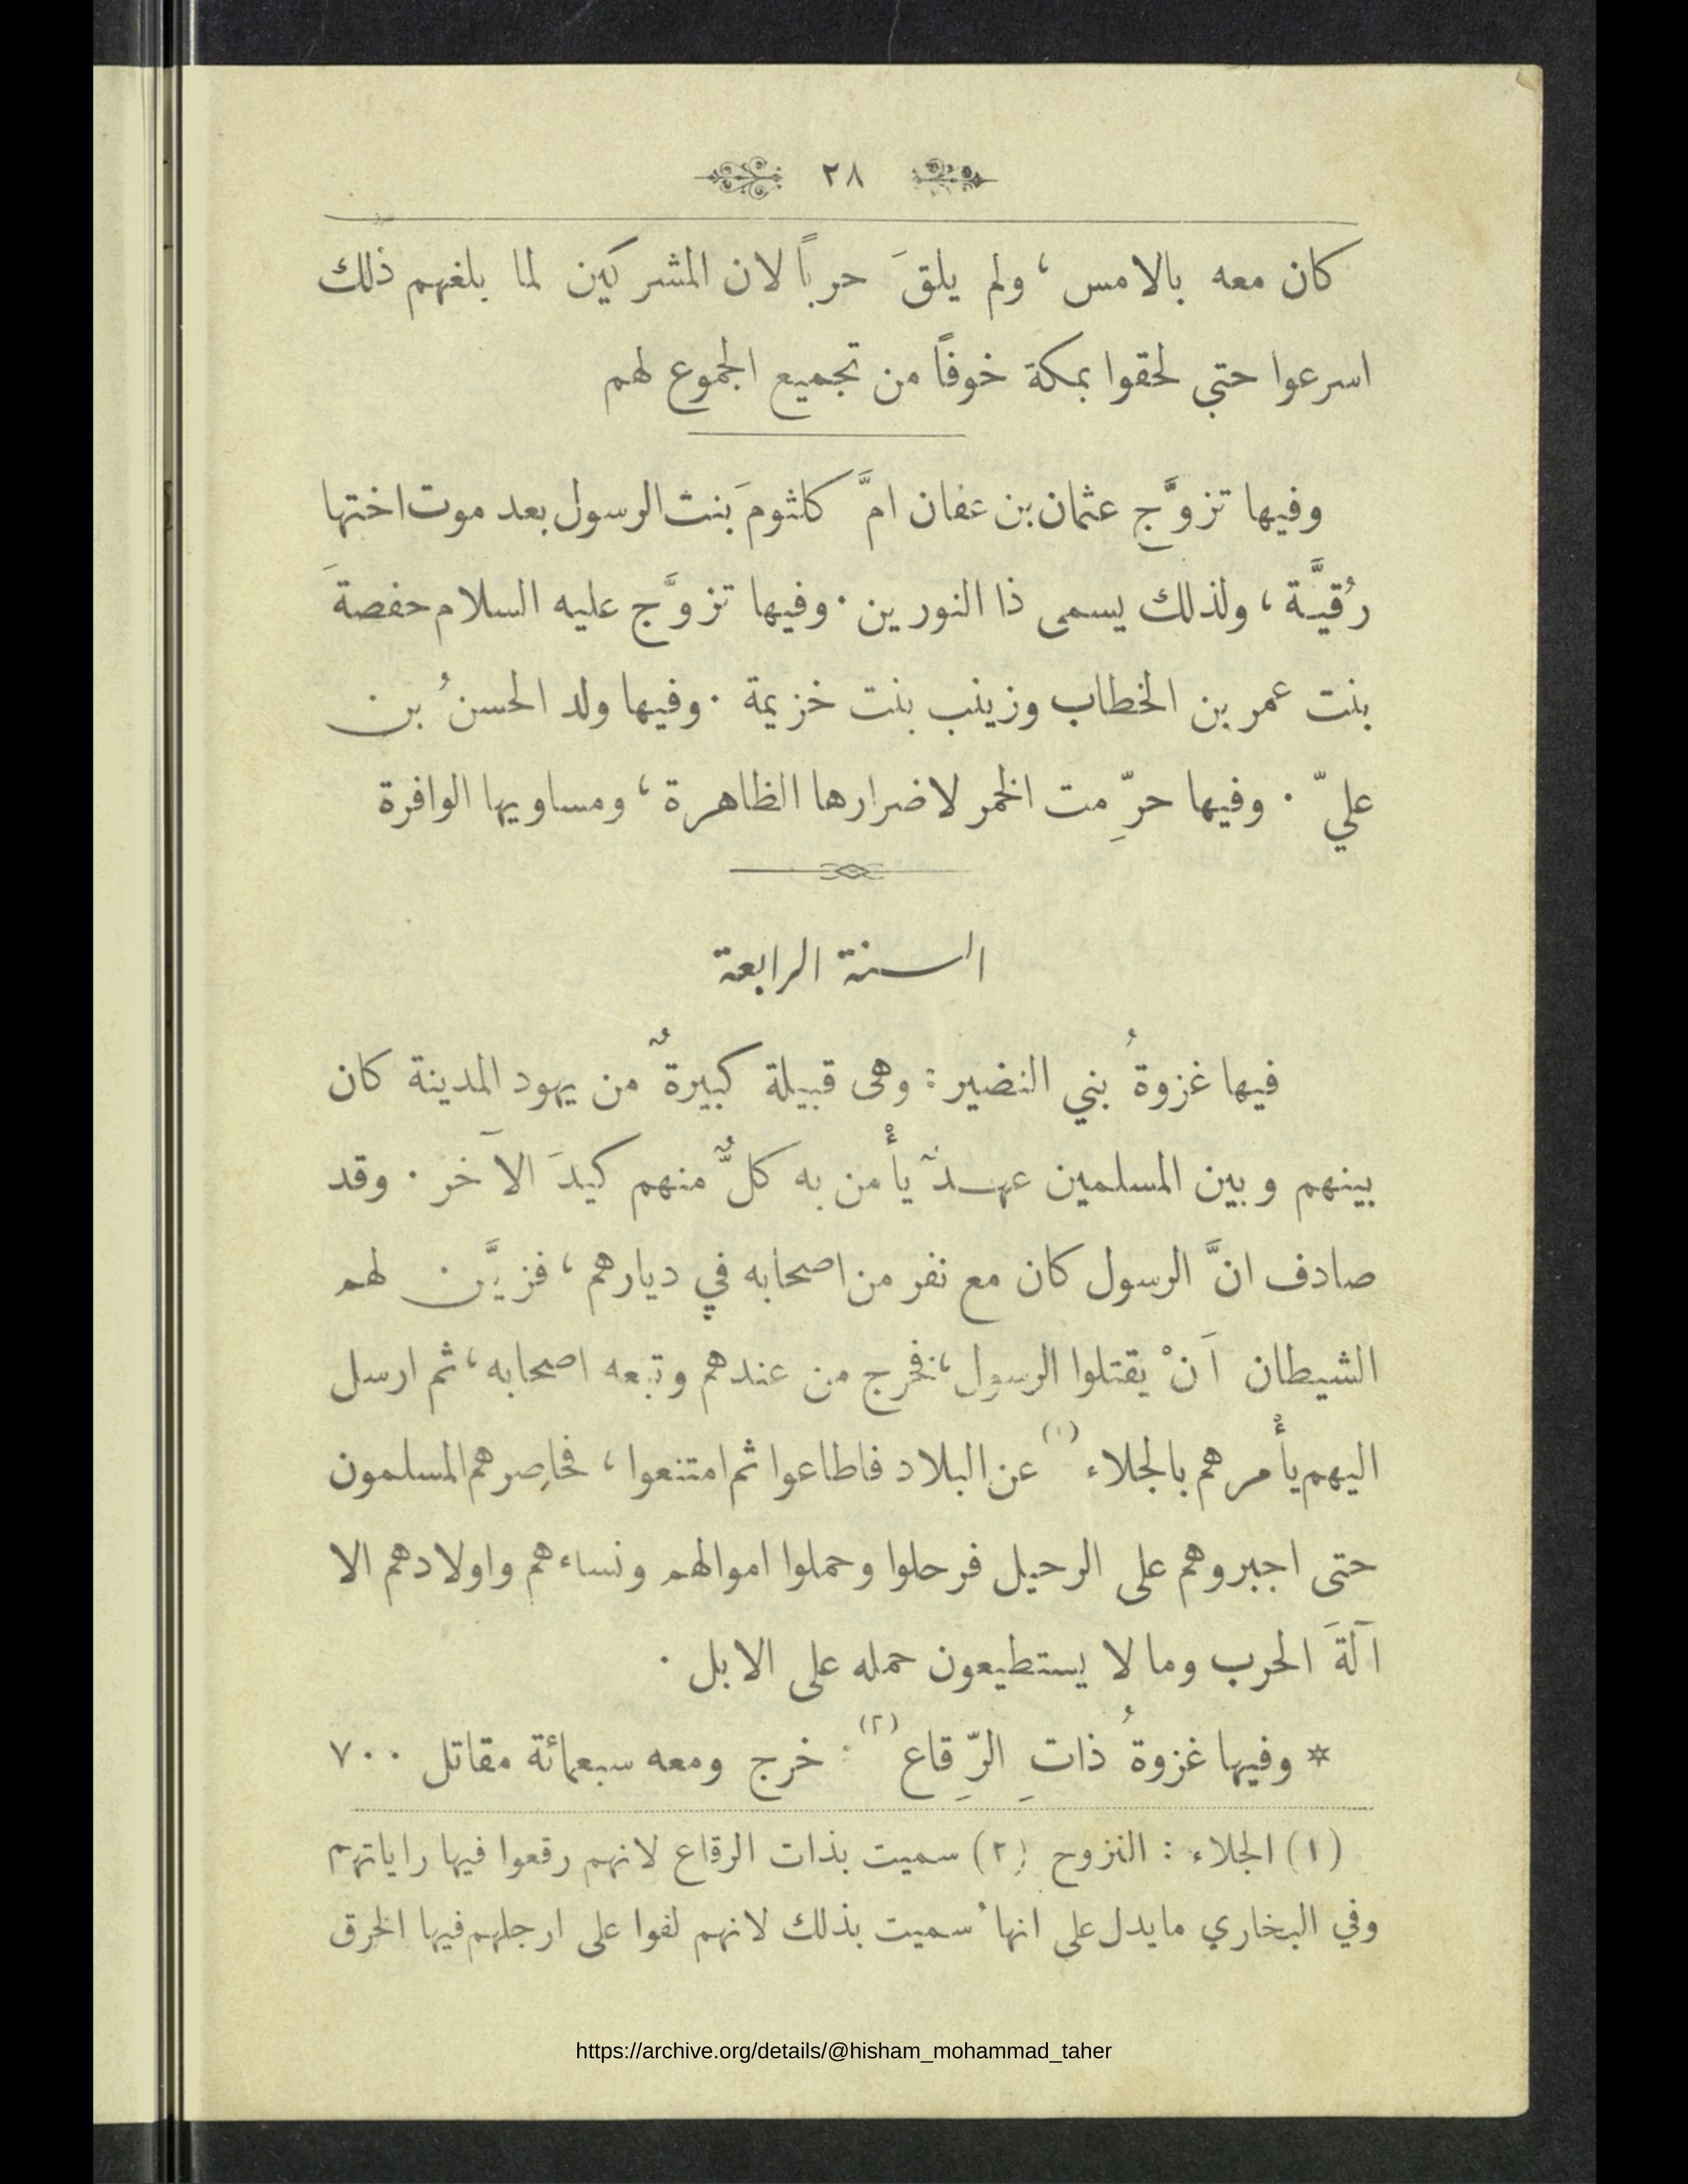 ٢٨
كان معه بالامس، ولم يلقَ حرباً لان المشركين لما بلغهم ذلك
اسرعوا حتى لحقوا بمكة خوفاً من تجميع الجموع لهم
وفيها تزوَّج عثمان بن عفان امَّ كلثومَ بنت الرسول بعد موت اختها
رُقيَّة، ولذلك يسمى ذا النورين. وفيها تزوَّج عليه السلام حفصةَ
بنت عمر بن الخطاب وزينب بنت خزيمة. وفيها ولد الحسنُ بن
عليّ. وفيها حرِّمت الخمر لاضرارها الظاهرة، ومساويها الوافرة
السنة الرابعة
فيها غزوةُ بني النضير: وهى قبيلة كبيرةٌ من يهود المدينة كان
بينهم وبين المسلمين عهدٌ يأْمن به كلٌّ منهم كيدَ الآخر. وقد
صادف انَّ الرسول كان مع نفر من اصحابه في ديارهم، فزيَّن لهم
الشيطان اَنْ يقتلوا الرسول، فخرج من عندهم وتبعه اصحابه، ثم ارسل
اليهم يأْمرهم بالجلاء (١) عن البلاد فاطاعوا ثم امتنعوا، فحاصرهم المسلمون
حتى اجبروهم على الرحيل فرحلوا وحملوا اموالهم ونساءهم واولادهم الا
آلةَ الحرب وما لا يستطيعون حمله على الابل.
* وفيها غزوةُ ذاتِ الرِّقاعِ (٢): خرج ومعه سبعمائة مقاتل ٧٠٠
(١) الجلاء: النزوح (٢) سميت بذات الرقاع لانهم رقعوا فيها راياتهم
وفي البخاري ما يدل على انها سميت بذلك لانهم لفوا على ارجلهم فيها الخرق
https://archive.org/details/@hisham_mohammad_taher